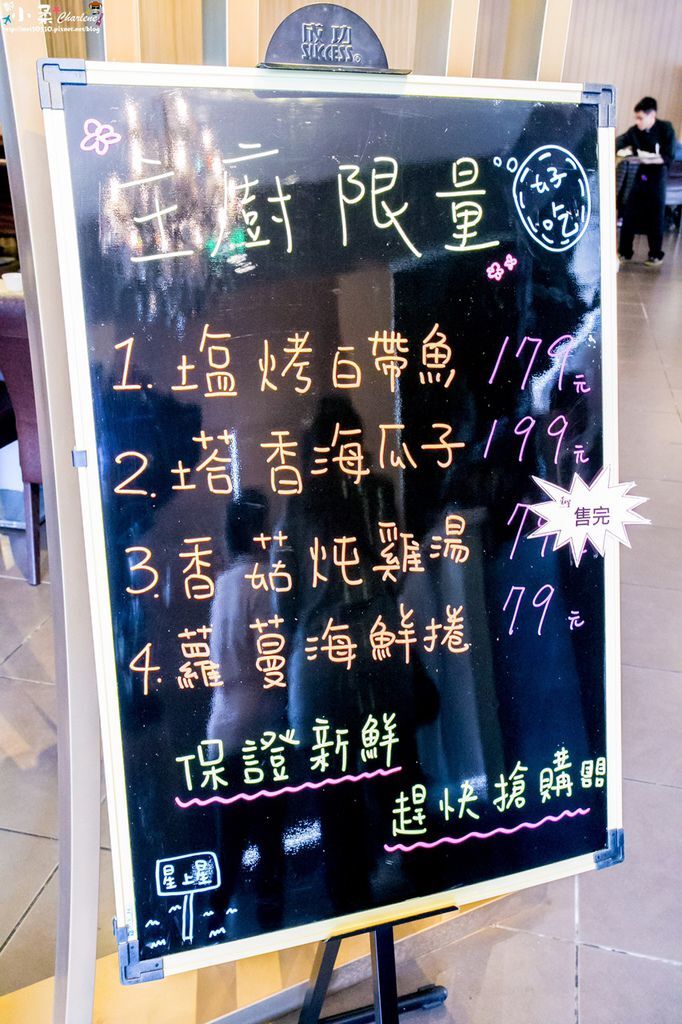 小柔 Charlene
成功
SUCCESS®
主廚限量
好吃
1. 塩烤白帶魚 179元
2. 塔香海瓜子 199元
3. 香菇炖雞湯 79
售完
4. 蘿蔓海鮮捲 79元
保證新鮮
趕快搶購
星上星